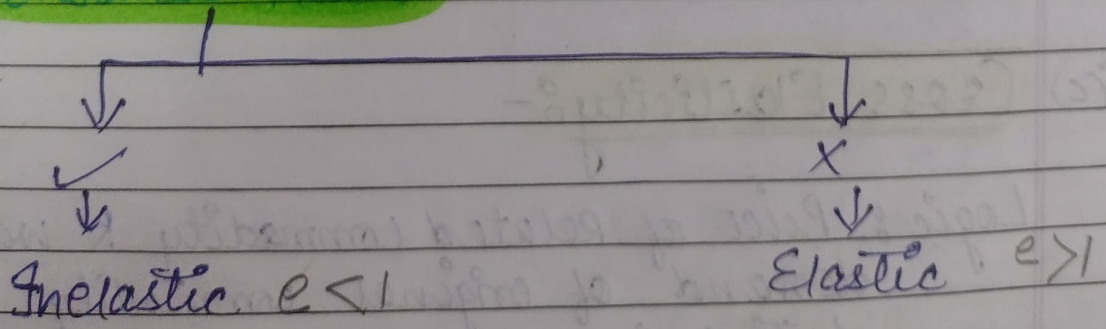 ✓ X
Inelastic e < 1 Elastic e > 1